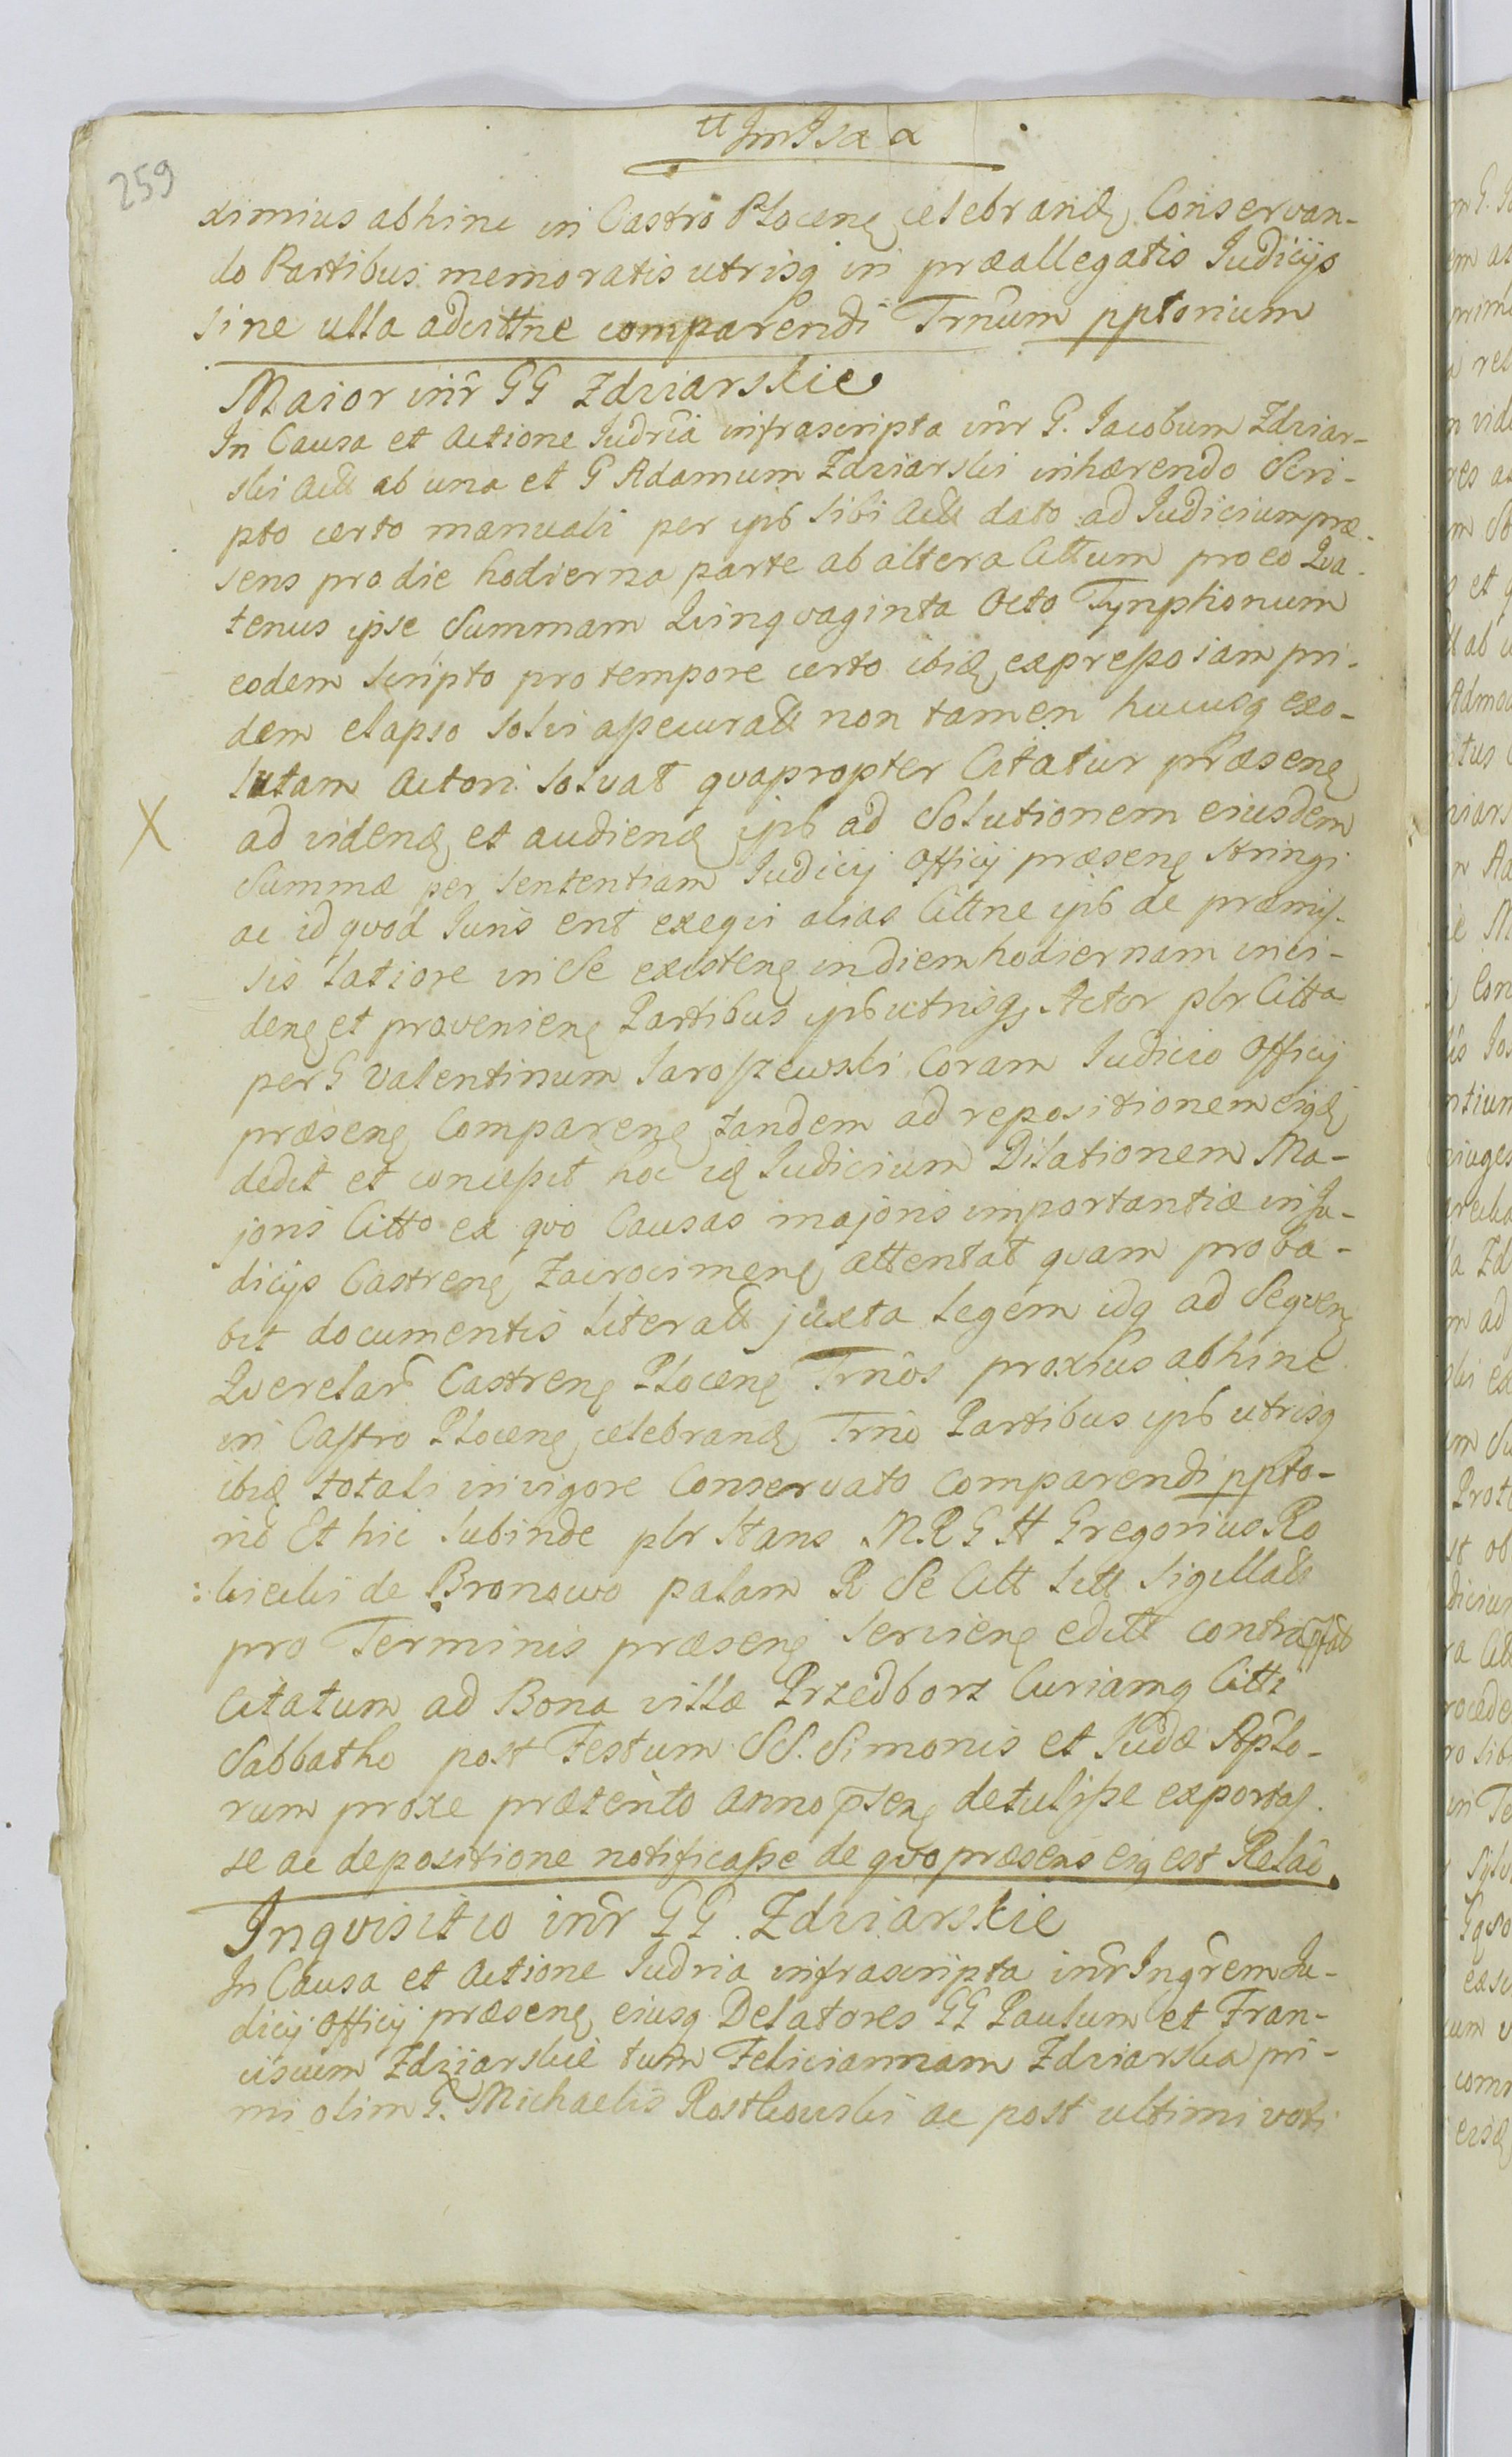 259
ximius abhinc in Castro Plocen celebrand Conservan-
do Partibus memoratis utrisq in præallegatis Iudicijs
sine ulla adcittne comparendi Trnum pptorium
Maior intr GG Zdziarskie
In Causa et Actione Iudria infrascripta intr G. Iacobum Zdziar-
ski Actt ab una et G Adamum Zdziarski inhærendo Scri-
pto certo manuali per ipb sibi Actt dato ad Iudicium præ-
sens pro die hodierna parte ab altera Cittum pro eo Qva-
tenus ipse Summam Qvinqvaginta Octo Tynphonum
eodem Scripto pro tempore certo ibid expresso iam pri-
dem elapso solvi assecuratt non tamen hucusq exo-
lutam Actori solvat qvapropter Citatur præsen
ad vidend et audiend ipb ad Solutionem eiusdem
Summæ per Sententiam Iudicij Officij præsen stringi
ac id qvod Iuris erit exeqvi alias Cittne ipb de præmis-
sis latiore in Se existen in diem hodiernam inci-
den et provenien Partibus ipb utrisq Actor plr Citta
per G Valentinum Jaroszewski Coram Iudicio Officij
præsen Comparen tandem ad repositionem eiqd
dedit et concessit hoc id Iudicium Dilationem Ma-
joris Citto ex qvo Causas majoris importantiæ in Iu-
dicijs Castren Zacrocimen attentat qvam proba-
bit documentis literatt juxta legem idq ad Seqven
Qverelar Castren Plocen Trnos proxius abhinc
in Castro Plocen celebrand Trno Partibus ipb utrisq
ibid totali in vigore Conservato comparendi ppto-
rio Et hic Subinde plr stans M.R G H Gregorius Ro
: kicki de Bronowo palam R Se Citt litt Sigillatt
pro Terminis præsen servien editt contra pfat
Citatum ad Bona villæ Przedborz Curiamq Citti
Sabbatho post Festum SS. Simonis et Iudæ Aplo-
rum proxe præterito anno psen detulisse exportas-
se ac depositione notificasse de qvo præsens eiq est Relao.
Inqvisitio intr GG Zdziarskie
In Causa et Actione Iudria infrascripta intr Ingrem Iu-
dicij Officij præsen eiusq Delatores GG Paulum et Fran-
ciscum Zdziarskie tum Feliciannam Zdziarska pri-
mi olim G. Michaelis Rostkowski ac post ultimi voti